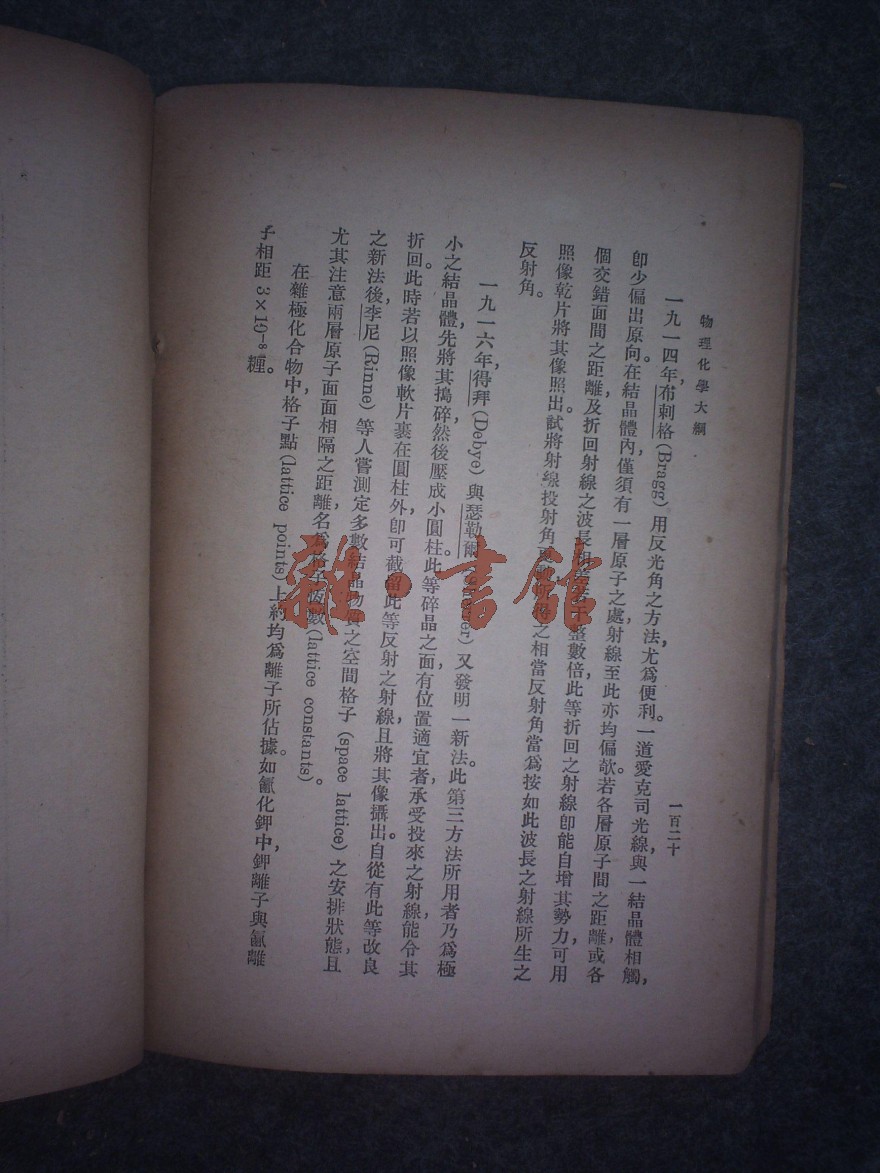 物理化學大綱
一百二十
一九一四年,布剌格(Bragg)用反光角之方法,尤爲便利。一道愛克司光線,與一結晶體相觸,
卽少偏出原向。在結晶體內,僅須有一層原子之處,射線至此亦均偏欹。若各層原子間之距離,或各
個交錯面間之距離,及折回射線之波長相差若干整數倍,此等折回之射線卽能自增其勢力,可用
照像乾片將其像照出。試將射線投射角更動,所得之相當反射角當爲按如此波長之射線所生之
反射角。
一九一六年,得拜(Debye)與瑟勒爾又發明一新法。此第三方法所用者乃爲極
小之結晶體,先將其搗碎,然後壓成小圓柱。此等碎晶之面有位置適宜者,承受投來之射線,能令其
折回。此時若以照像軟片裹在圓柱外,卽可截留此等反射之射線,且將其像攝出。自從有此等改良
之新法後,李尼(Rinne)等人嘗測定多數結晶物質之空間格子(space lattice)之安排狀態,且
尤其注意兩層原子面面相隔之距離,名爲格子恆數(lattice constants)。
在雜極化合物中,格子點(lattice points)上約均爲離子所佔據。如氯化鉀中,鉀離子與氯離
子相距 3×10⁻⁸ 糎。
雜·書館